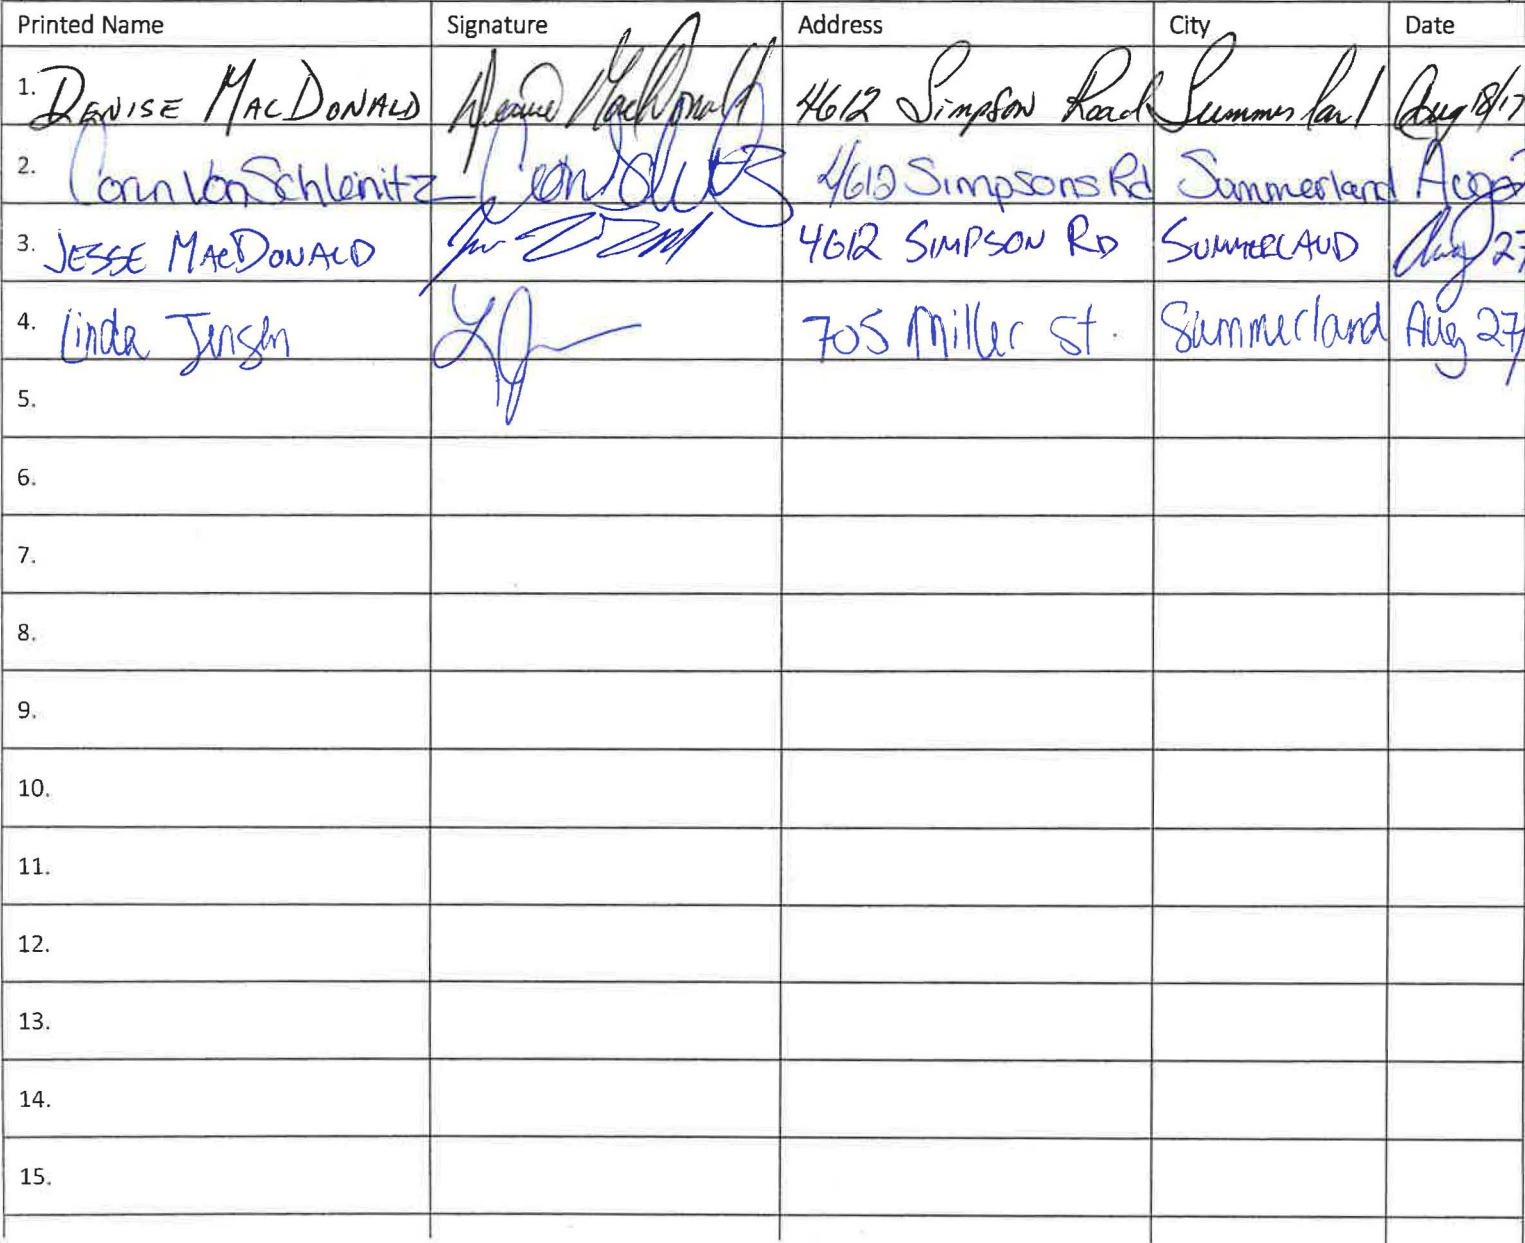 Printed Name Signature Address City Date
1. DENISE MACDONALD Denise MacDonald 4612 Simpson Road Summerland Aug 18/17
2. Corin Von Schleinitz 4612 Simpsons Rd Summerland Aug
3. JESSE MACDONALD 4612 SIMPSON RD SUMMERLAND Aug 27
4. Linda Jensen LJ 705 Miller St. Summerland Aug 27/
5.
6.
7.
8.
9.
10.
11.
12.
13.
14.
15.